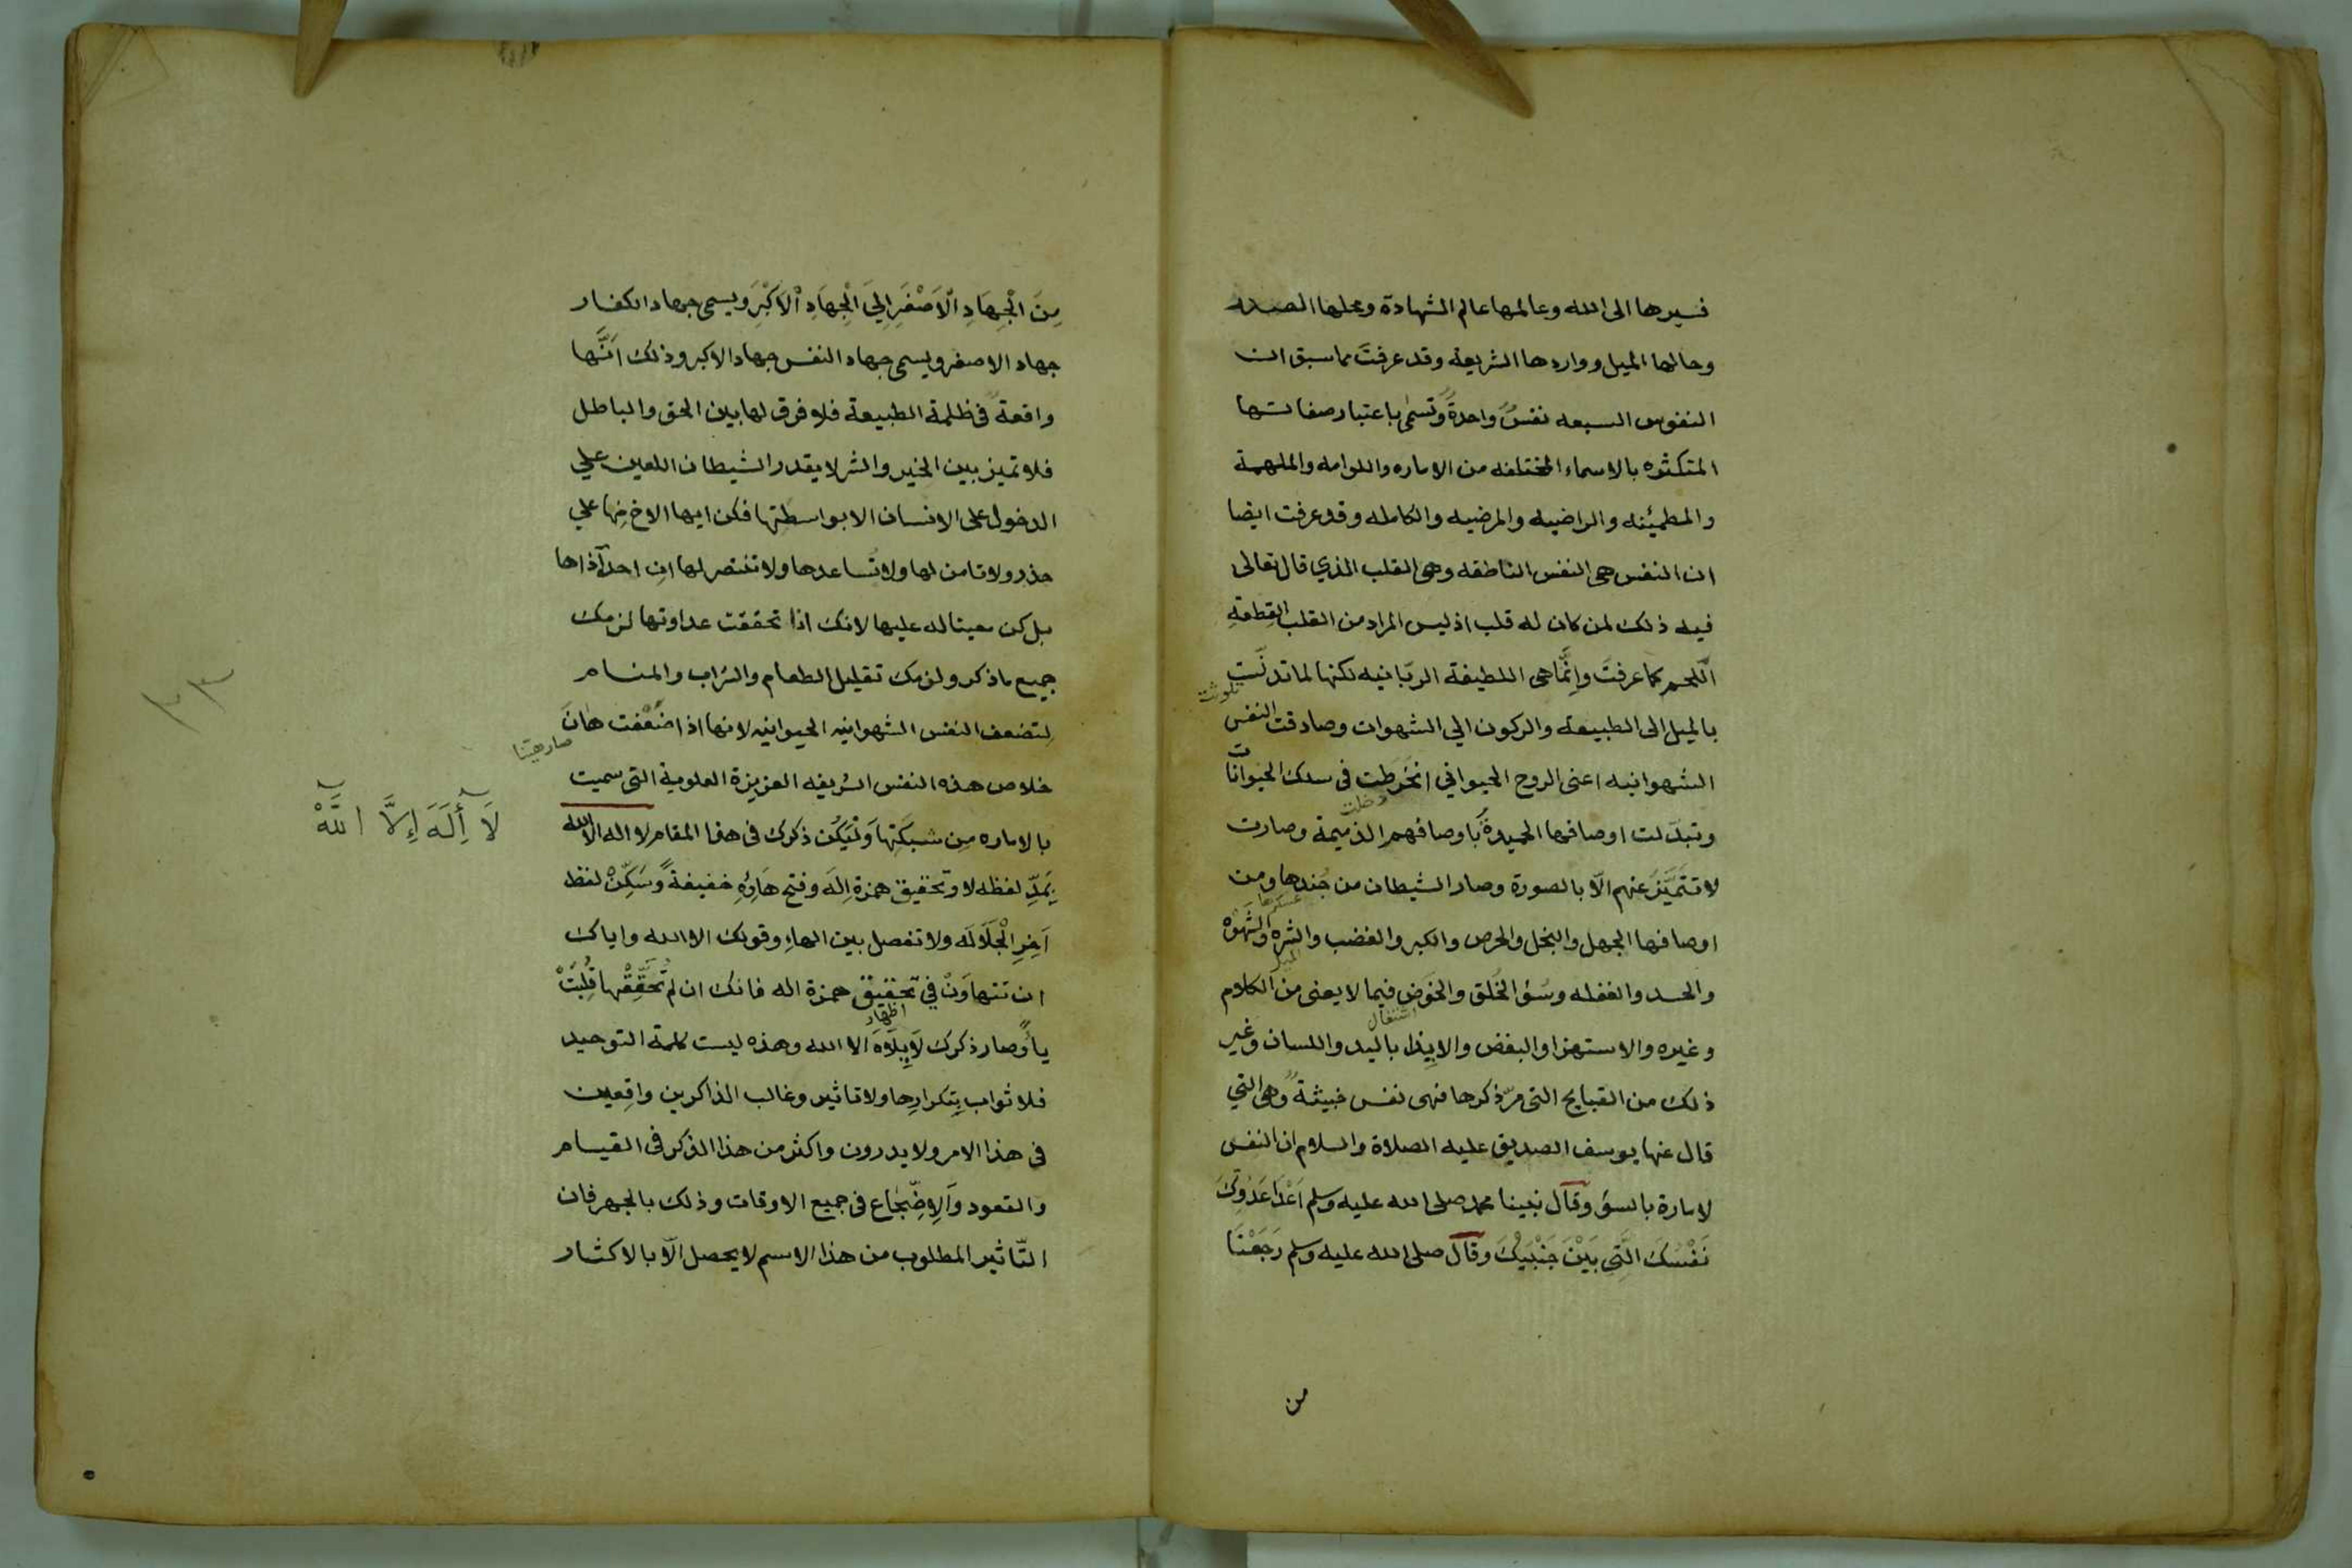 فسيرها الى الله وعالمها عالم الشهادة ومحلها الصدر
وحالها الميل وواردها الشريعة وقد عرفتَ مما سبق ان
النفوس السبعه نفسٌ واحدةٌ وتسمّى باعتبار صفاتها
المتكثره بالاسماء المختلفه من الاماره واللوامه والملهمة
والمطمئنه والراضيه والمرضيه والكامله وقد عرفت ايضا
ان النفس هى النفس الناطقه وهى القلب الذي قال تعالى
فيه ذلك لمن كان له قلب اذ ليس المراد من القلب القِطعَةِ
اللّحم كما عرفتَ وانّما هى اللطيفة الربّانيه لكنها لما تدنّستِ
تلوثت
بالميل الى الطبيعة والركون الي الشهوات وصادقت النفس
الشهوانيه اعنى الروح الحيواني انخَرَطت فى سلك الحيوانات
دخلت
وتبدّلت اوصافها الحميدةُ باوصافهم الذميمة وصارت
لا تتميّز عنهم الّا بالصورة وصار الشيطان من جُندها ومن
عسكرها
اوصافها الجهل والبخل والحرص والكبر والغضب والشره والشهوه
الميل
والحسد والغفله وسُؤ الخُلق والخَوض فيما لا يعنى من الكلام
اشتغال
وغيره والاستهزا والبغض والايذا باليد واللسان وغير
ذلك من القبايح التى مرّ ذكرها فهى نفس خبيثةٌ وهى التي
قال عنها يوسف الصديق عليه الصلاة والسلام ان النفس
لامارة بالسؤ وقال نبينا محمد صلى الله عليه وسلم اَعْدَا عَدُوّكَ
نَفْسُكَ الَّتِى بَيْنَ جَنْبَيْكَ وقال صلى الله عليه وسلم رَجَعْنَا
من
مِنَ الْجِهَادِ الْاَصْغَرِ اِلَي الْجِهَادِ الْاَكْبَرِ ويسمى جهاد الكفار
جهاد الاصغر ويسمى جهاد النفس جهاد الاكبر وذلك اَنّها
واقعةٌ فى ظلمة الطبيعة فلا فرق لها بين الحق والباطل
فلا تميز بين الخير والشر لا يقدر الشيطان اللعين علي
الدخول على الانسان الا بواسطتها فكن ايها الاخ منها علي
حذر ولا تامن لها ولا تُساعدها ولا تنتصر لها ان احدٌ آذاها
بل كن معينا له عليها لانك اذا تحققت عداوتها لزمك
جميع ما ذكر ولزمك تقليل الطعام والشراب والمنام
لتضعف النفس الشهوانيه الحيوانيه لانها اذا ضَعُفت هانَ
صار هيّنا
خلاص هذه النفس الشريفه العزيزة العلوية التى سميت
بالاماره مِن شبكتِها وَلْيَكُن ذكرك فى هذا المقام لا اله الا الله
لَا أِلَهَ إِلَّا اللَّهْ
بِمَدِّ لفظه لا وتحقيق همزة اِلهَ وفتح هَائِهِ خفيفةً وسَكِّنْ لفظ
آخِرِ الْجَلَالَه ولا تفصل بين الهاءِ وقولك الا الله واياك
ان تتهاوَنْ فِي تحقيق همزة اله فانك ان لم تُحَقِّقْها قُلِبَتْ
اظهار
ياً وصار ذكرك لَا يِلَاهَ الا الله وهذه ليست كلمة التوحيد
فلا ثواب بِتكرارِها ولا تاثير وغالب الذاكرين واقِعين
فى هذا الامر ولا يدرون واكثر من هذا الذكر فى القيام
والقعود وَالِاضّجاع فى جميع الاوقات وذلك بالجهر فان
التّاثير المطلوب من هذا الاسم لا يحصل الّا بالاكثار